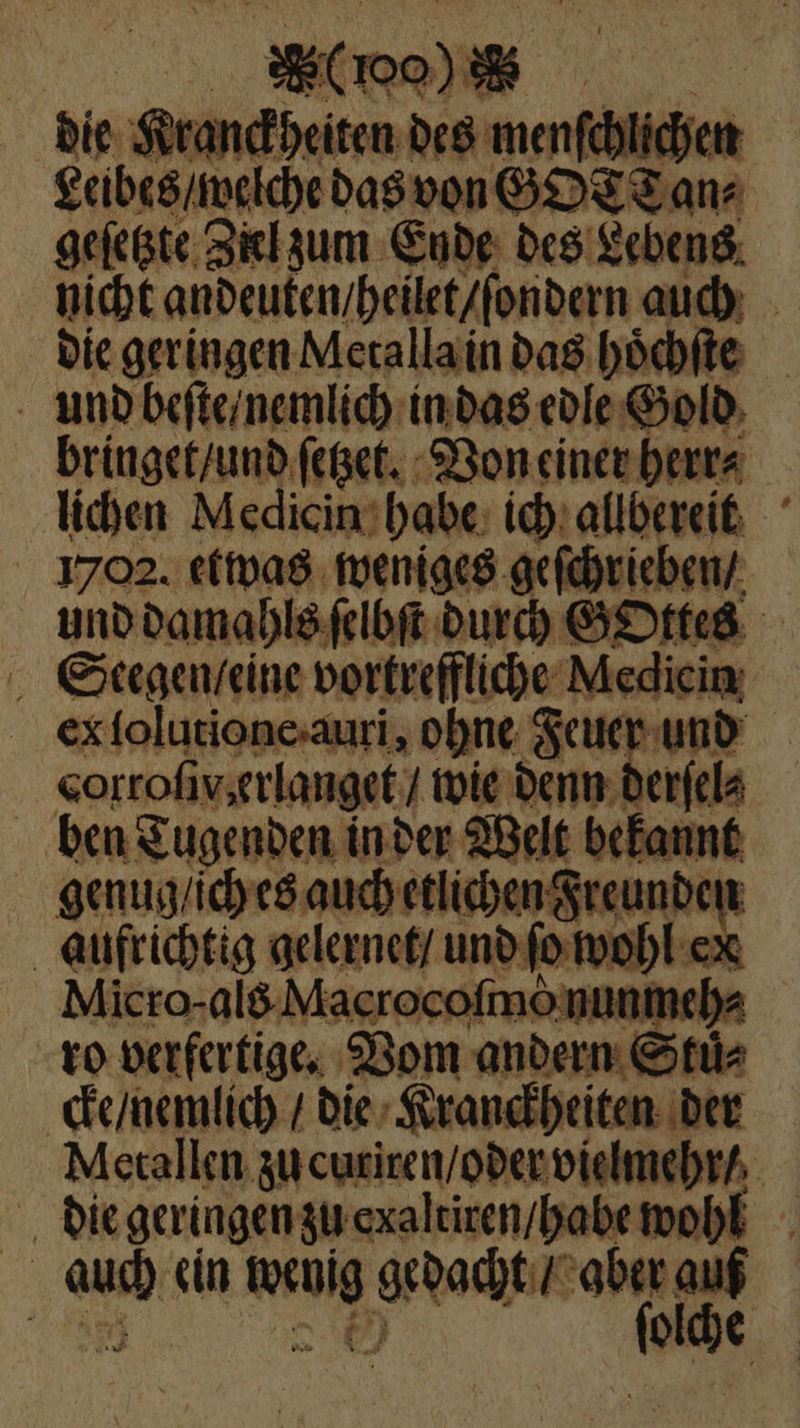 (100)
die Kranckheiten des menſchlichen
Leibes/welche das von GOTT an⸗
geſetzte Ziel zum Ende des Lebens
nicht andeuten/heilet/ſondern auch
die geringen Metalla in das hoͤchſte
und beſte/nemlich in das edle Gold
bringet/und ſetzet. Von einer herr⸗
lichen Medicin habe ich allbereit
1702. etwas weniges geſchrieben/
und damahls ſelbſt durch GOttes
Seegen/eine vortreffliche Medicin
ex ſolutione auri, ohne Feuer und
corroſiv, erlanget / wie denn derſel⸗
ben Tugenden in der Welt bekannt
genug/ich es auch etlichen Freunden
aufrichtig gelernet/ und ſo wohl ex
Micro-als Macrocoſmò nunmeh⸗
ro verfertige. Vom andern Stuͤ⸗
cke/nemlich / die Kranckheiten der
Metallen zu curiren/oder vielmehr/
die geringen zu exaltiren/habe wohl
auch ein wenig gedacht / aber auf
ſolche